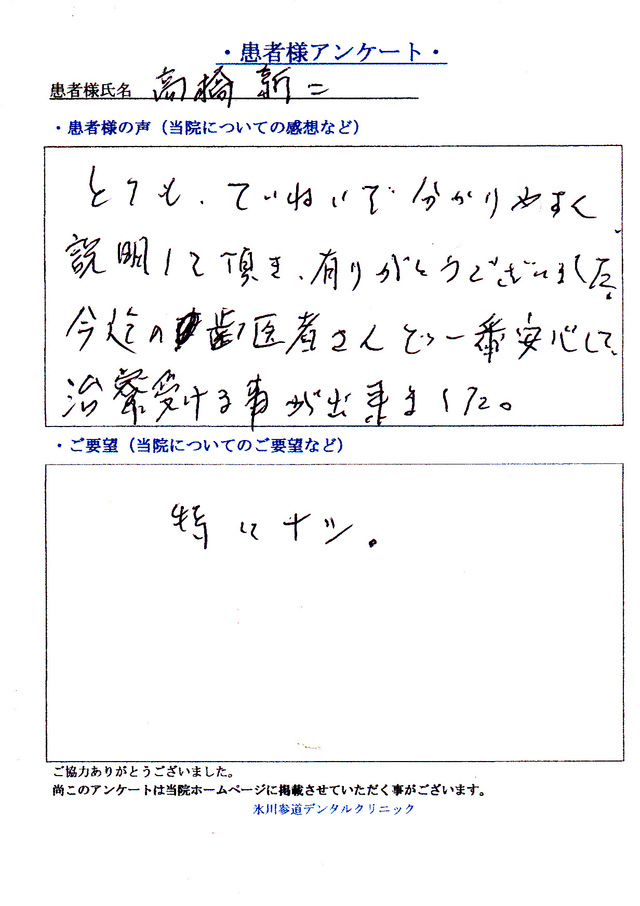 ・患者様アンケート・
患者様氏名 高橋新二
・患者様の声（当院についての感想など）
とても、ていねいで分かりやすく
説明して頂き、有りがとうございました。
今迄の歯医者さんで一番安心して、
治療受ける事が出来ました。
・ご要望（当院についてのご要望など）
特にナシ。
ご協力ありがとうございました。
尚このアンケートは当院ホームページに掲載させていただく事がございます。
氷川参道デンタルクリニック